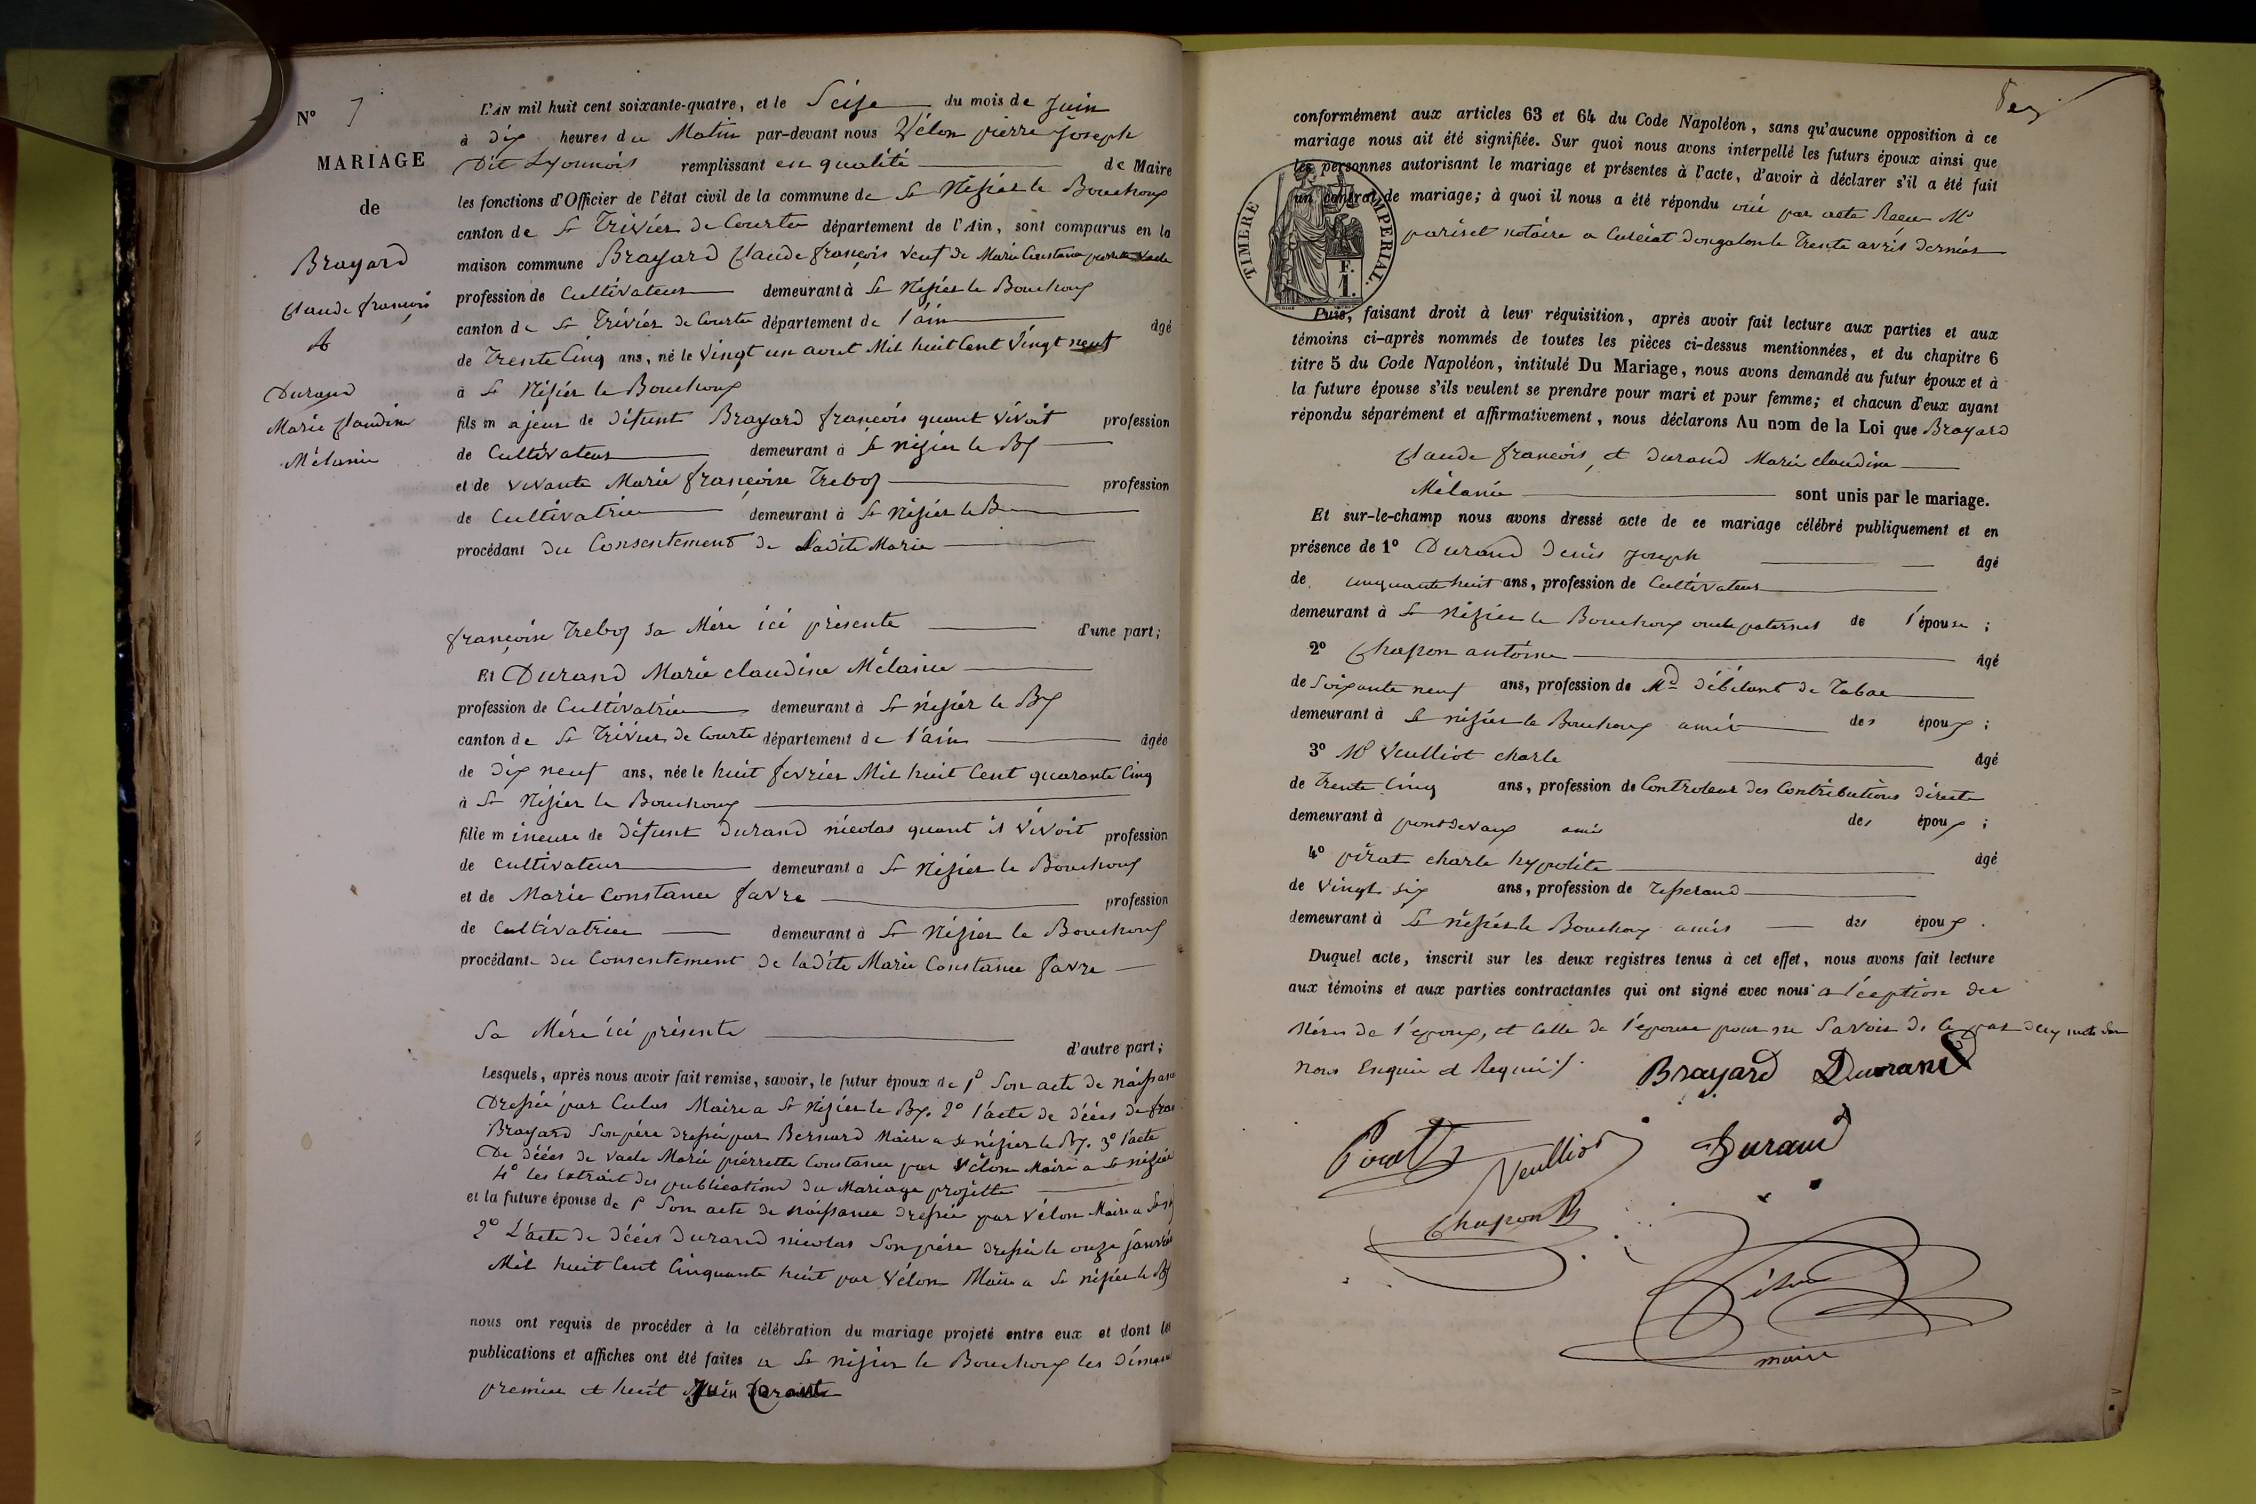 N° 7
MARIAGE
de
Brayard
Claude françois
&
Durand
Marie Claudine
Mélanie
L'AN mil huit cent soixante-quatre, et le Seize du mois de Juin
à dix heures du Matin par-devant nous Vélon pierre Joseph
Dit Lyonnois remplissant en qualité de Maire
les fonctions d'Officier de l'état civil de la commune de St Nizier le Bouchoux
canton de St Trivier de Courtes département de l'Ain, sont comparus en la
maison commune Brayard Claude françois veuf de Marie Constance pierrette Vacle
profession de Cultivateur demeurant à St Nizier le Bouchoux
canton de St Trivier de Courte département de l'ain âgé
de Trente Cinq ans, né le Vingt un aout Mil huit Cent Vingt neuf
à St Nizier le Bouchoux
fils majeur de Défunt Brayard françois quant vivoit profession
de Cultivateur demeurant à St nizier le Bx
et de vivante Marie françoise Treboz profession
de Cultivatrice demeurant à St Nizier le B
procédant du Consentement de Ladite Marie
françoise Treboz sa Mére ici présente d'une part;
Et Durand Marie claudine Mélanie
profession de Cultivatrice demeurant à St nizier le Bx
canton de St Trivier de Courte département de l'ain âgée
de dix neuf ans, née le huit fevrier Mil huit Cent quarante Cinq
à St Nizier le Bouchoux
fille mineure de Défunt Durand nicolas quant il vivoit profession
de Cultivateur demeurant a St Nizier le Bouchoux
et de Marie Constance favre profession
de Cultivatrice demeurant à St Nizier le Bouchoux
procédant du Consentement de ladite Marie Constance favre
Sa Mére ici présente
d'autre part;
Lesquels, après nous avoir fait remise, savoir, le futur époux de 1° Son acte de naissance
Dressée par Maire a St Nizier le Bx. 2° l'acte de décès de
Brayard Son pére dressé par Bernard Maire a St nizier le Bx. 3° l'acte
De décés de Vacle Marie pierrette Constance par Vélon Maire a St nizier
4° les Extrait des publications du Mariage projetté
et la future épouse de 1° Son acte de naissance dressée par Vélon Maire a
2° L'acte de décès Durand nicolas Son pére dressé le onze janvier
Mil huit Cent Cinquante huit par Vélon Maire a St nizier le Bx
nous ont requis de procéder à la célébration du mariage projeté entre eux et dont les
publications et affiches ont été faites a St nizier le Bouchoux les
premier et huit Juin Courant
conformément aux articles 63 et 64 du Code Napoléon, sans qu'aucune opposition à ce
mariage nous ait été signifiée. Sur quoi nous avons interpellé les futurs époux ainsi que
les personnes autorisant le mariage et présentes à l'acte, d'avoir à déclarer s'il a été fait
un contrat de mariage; à quoi il nous a été répondu oui par acte Recu Me
pariset notaire a Curciat dongalon le Trente avril dernier
TIMBRE IMPERIAL.
F.
1.
Puis, faisant droit à leur réquisition, après avoir fait lecture aux parties et aux
témoins ci-après nommés de toutes les pièces ci-dessus mentionnées, et du chapitre 6
titre 5 du Code Napoléon, intitulé Du Mariage, nous avons demandé au futur époux et à
la future épouse s'ils veulent se prendre pour mari et pour femme; et chacun d'eux ayant
répondu séparément et affirmativement, nous déclarons Au nom de la Loi que Brayard
Claude françois, et Durand Marie claudine
Mélanie sont unis par le mariage.
Et sur-le-champ nous avons dressé acte de ce mariage célébré publiquement et en
présence de 1° Durand Denis Joseph âgé
de cinquante huit ans, profession de Cultivateur
demeurant à St Nizier le Bouchoux oncle paternel de l'épouse;
2° Chapon antoine âgé
de Soixante neuf ans, profession de Md débitant de Tabac
demeurant à St nizier le Bouchoux amis des époux;
3° Mr Veulliot charle âgé
de Trente Cinq ans, profession de Controleur des Contributions directe
demeurant à pontdevaux amis des époux;
4° pirat charle hypolite âgé
de vingt six ans, profession de Tisserand
demeurant à St nizier le Bouchoux amis des époux.
Duquel acte, inscrit sur les deux registres tenus à cet effet, nous avons fait lecture
aux témoins et aux parties contractantes qui ont signé avec nous a léception des
Méres de l'epoux, et Celle de l'epouse pour ne Savoir de ce par
nous Enquis et Requis.
Brayard Durand
Pirat Veulliot Durand
Chapon
Vélon
maire